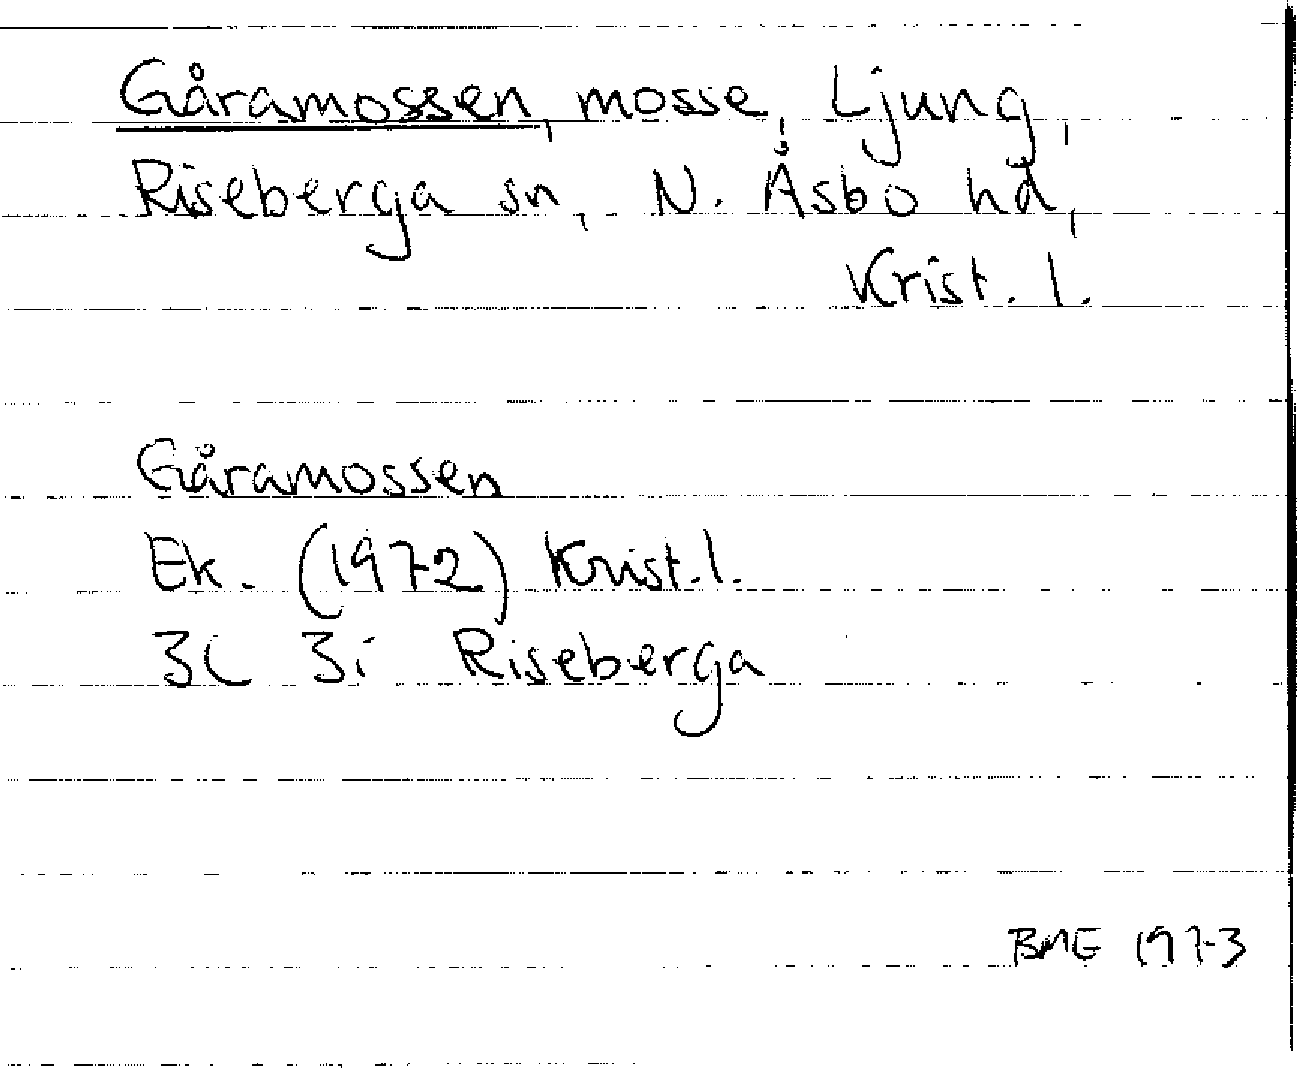 Gåramossen, mosse, Ljung,
Riseberga sn, N. Åsbo hd,
Krist. l.
Gåramossen
Ek. (1972) Krist. l.
3C 3i Riseberga
BME 1973